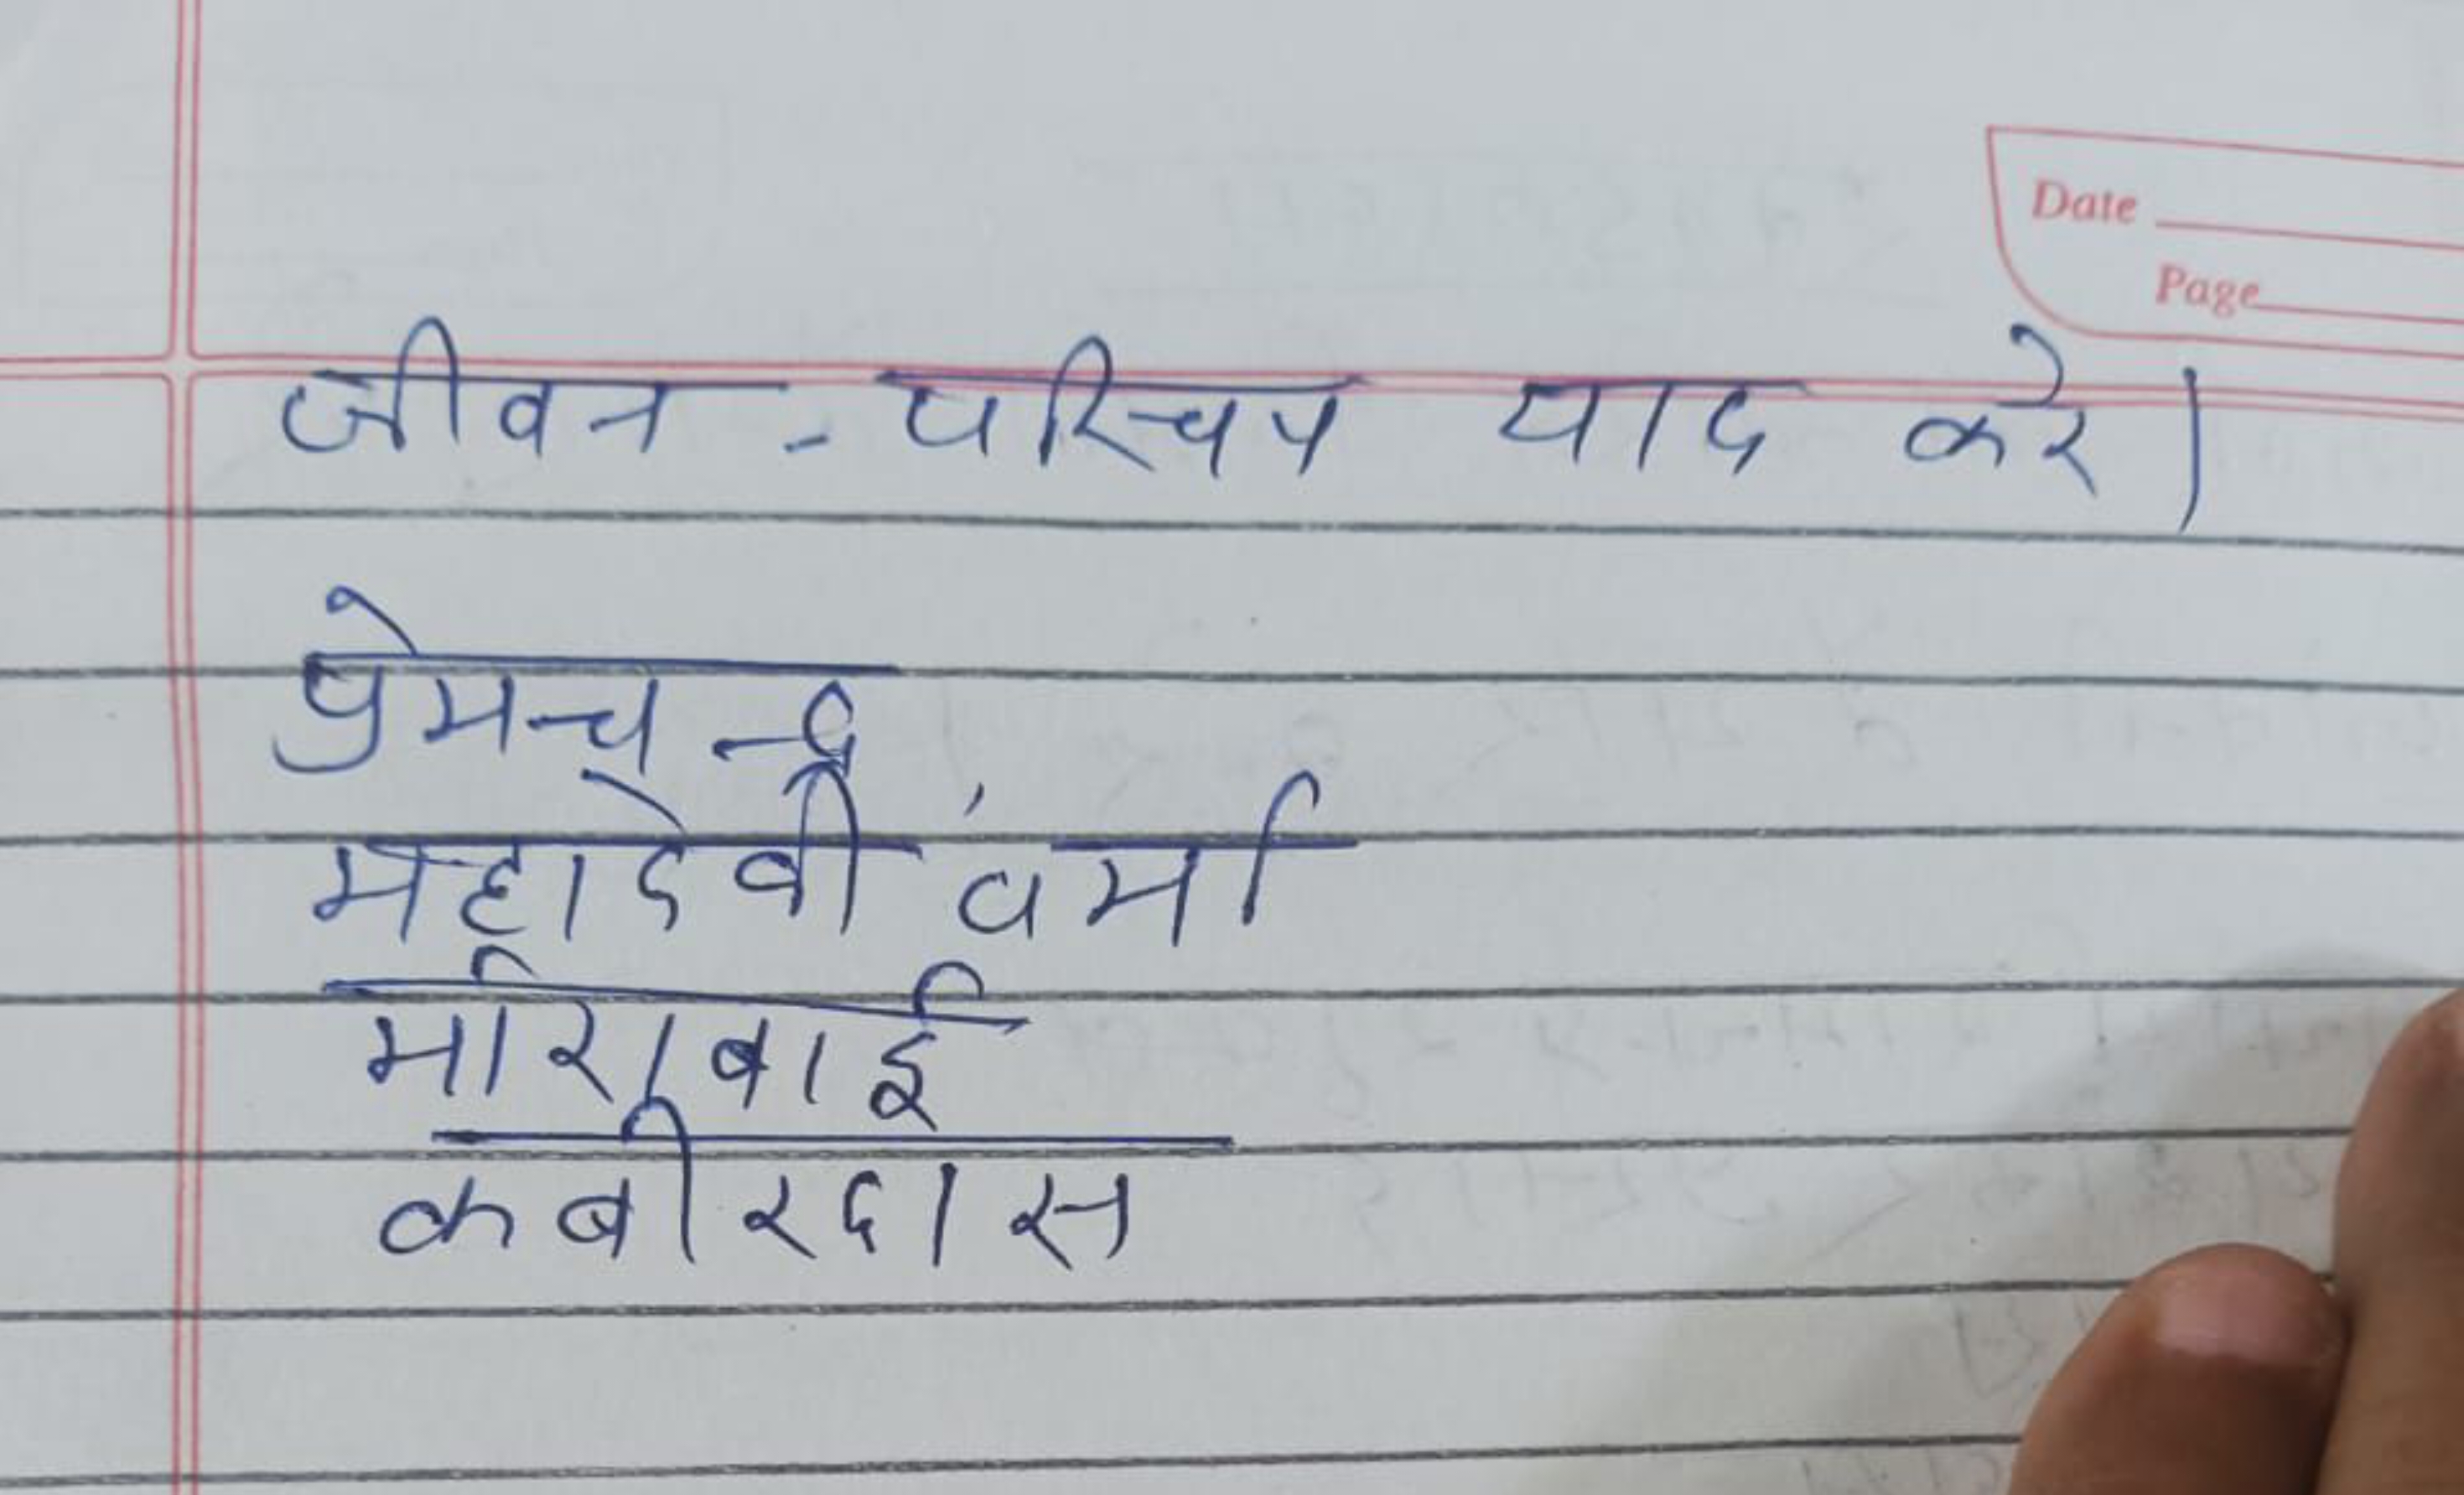 Date
Page
जीवन - परिचय याद करे।
प्रेमचन्द
महादेवी वर्मा
मीराबाई
कबीरदास